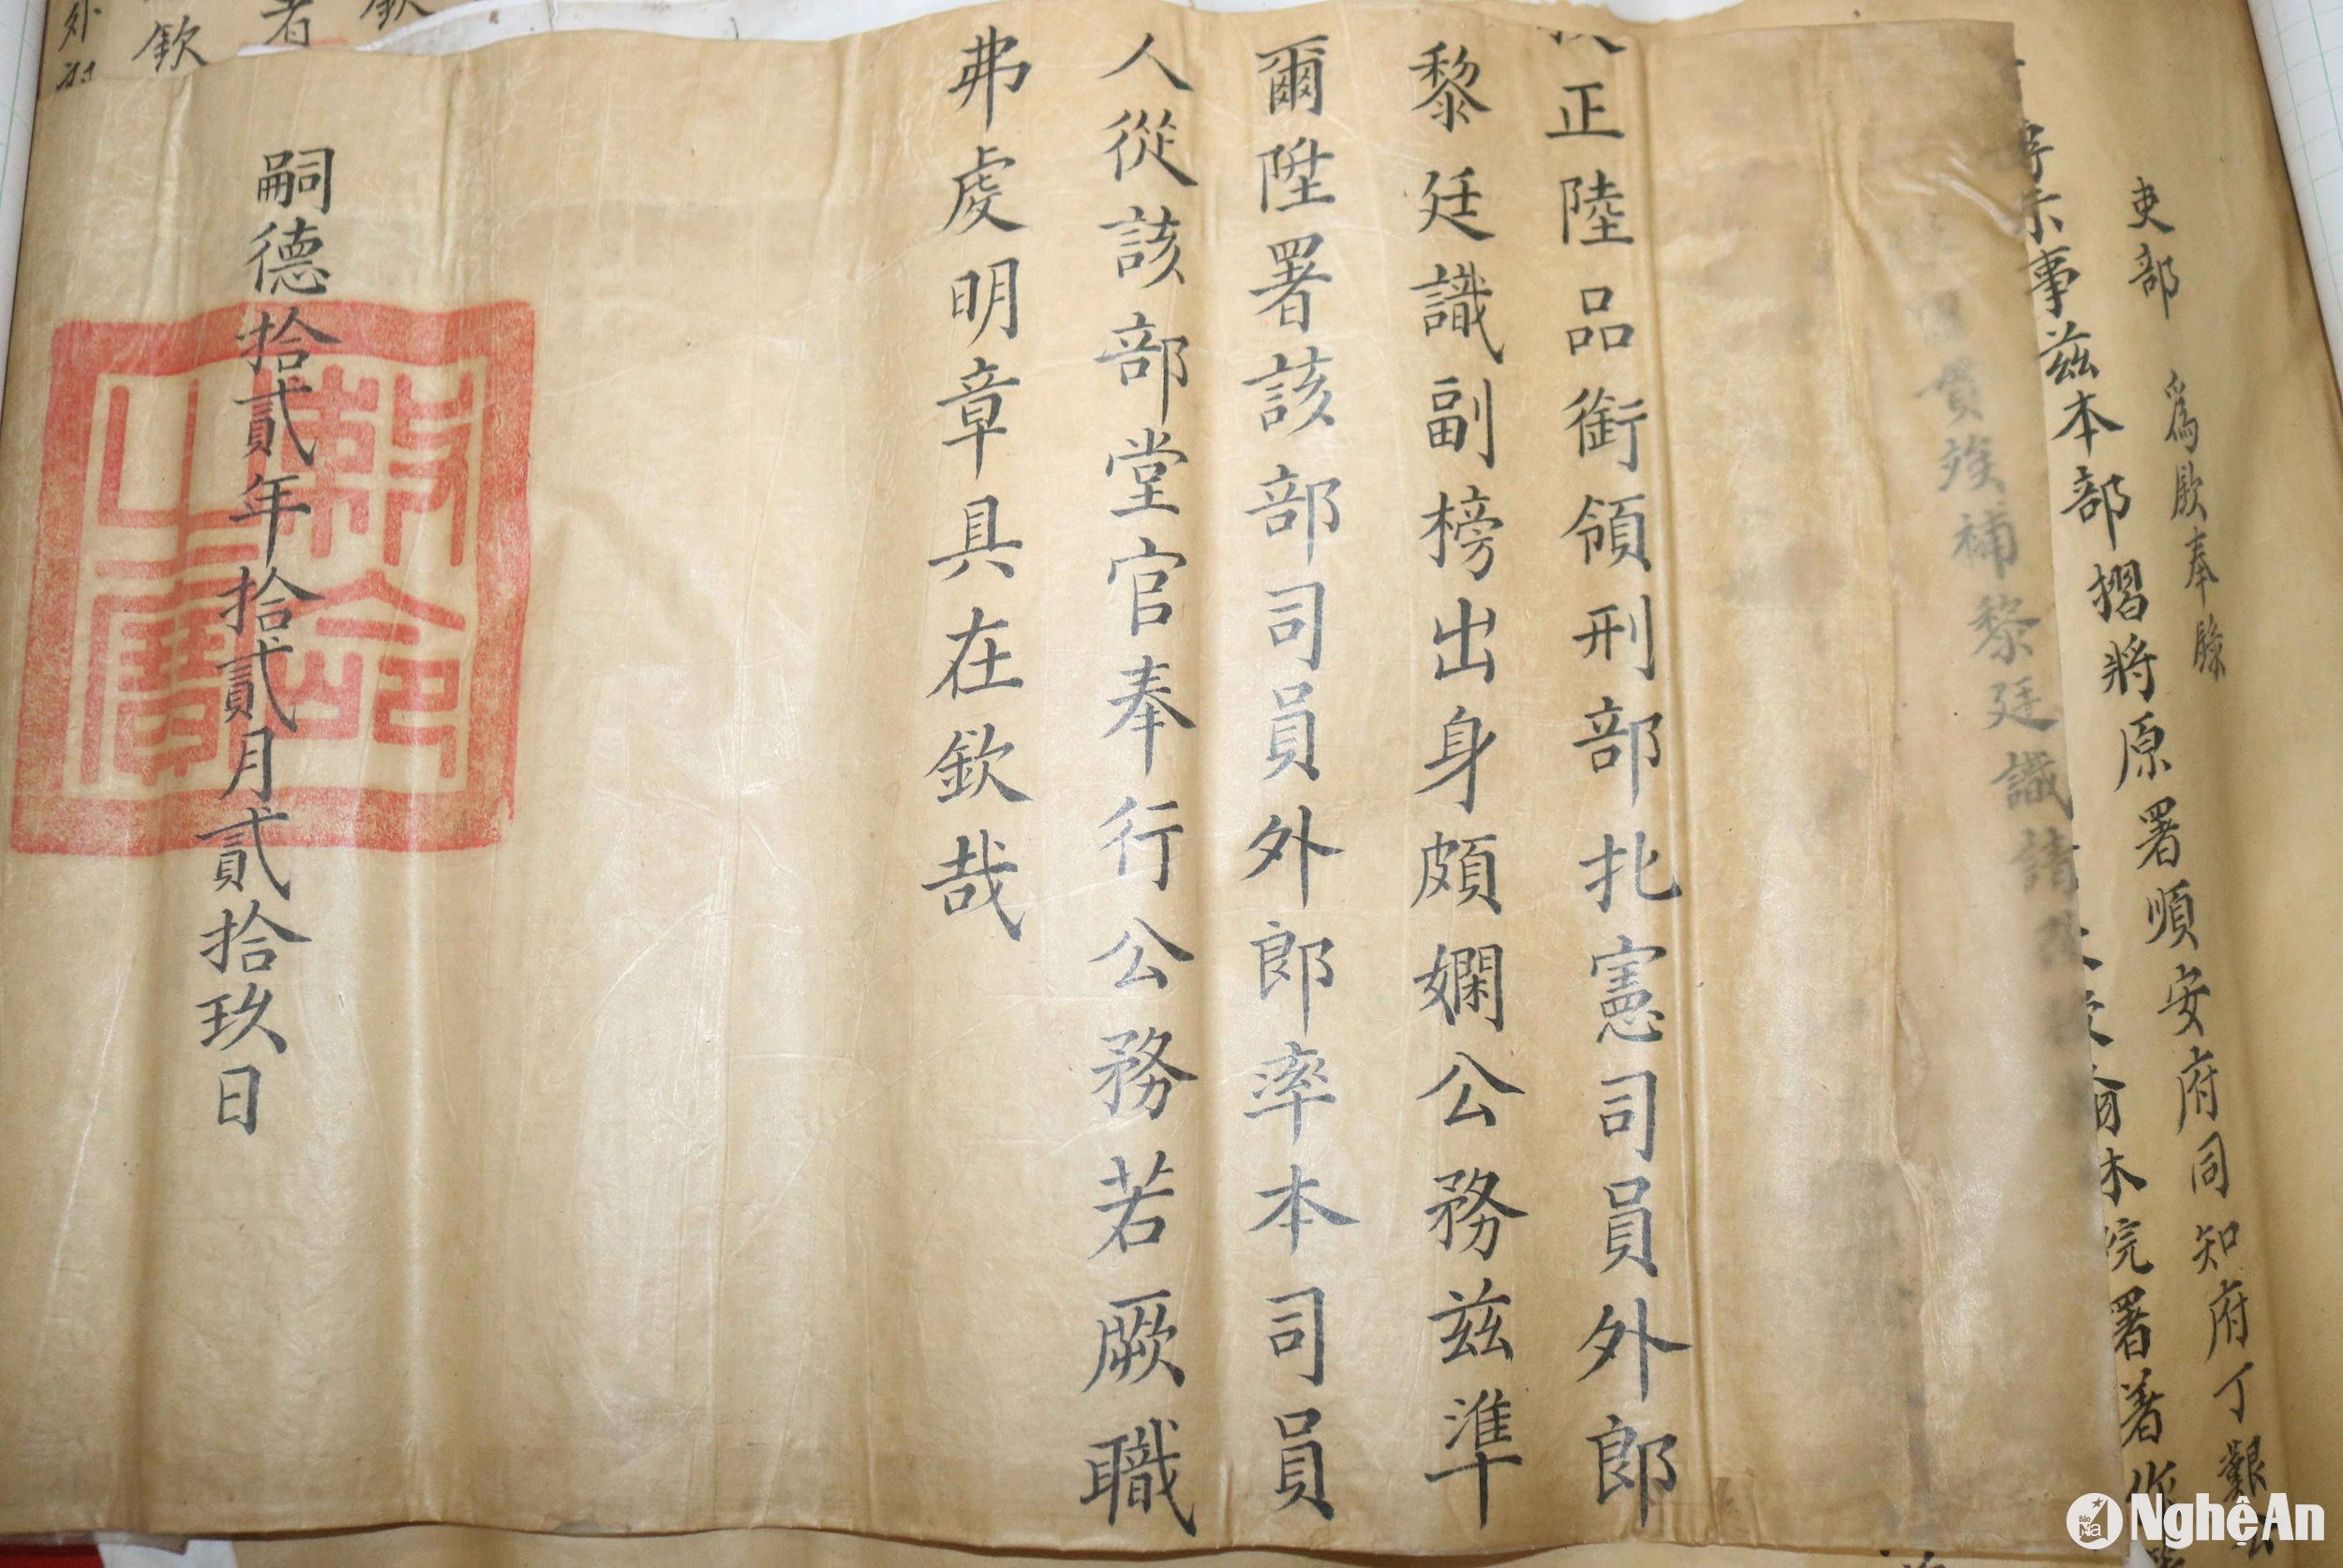 吏部 爲欽奉錄
事兹本部摺將原署順安府同知府丁艱
本院署著作
貫 補黎廷識請
正陸品銜領刑部扎憲司員外郎
黎廷識副榜出身頗嫻公務兹準
爾陞署該部司員外郎率本司員
人從該部堂官奉行公務若厥職
弗虔明章具在欽哉
嗣德拾貳年拾貳月貳拾玖日
敕命之寶
欽
者
欽
外
Báo Na NghệAn